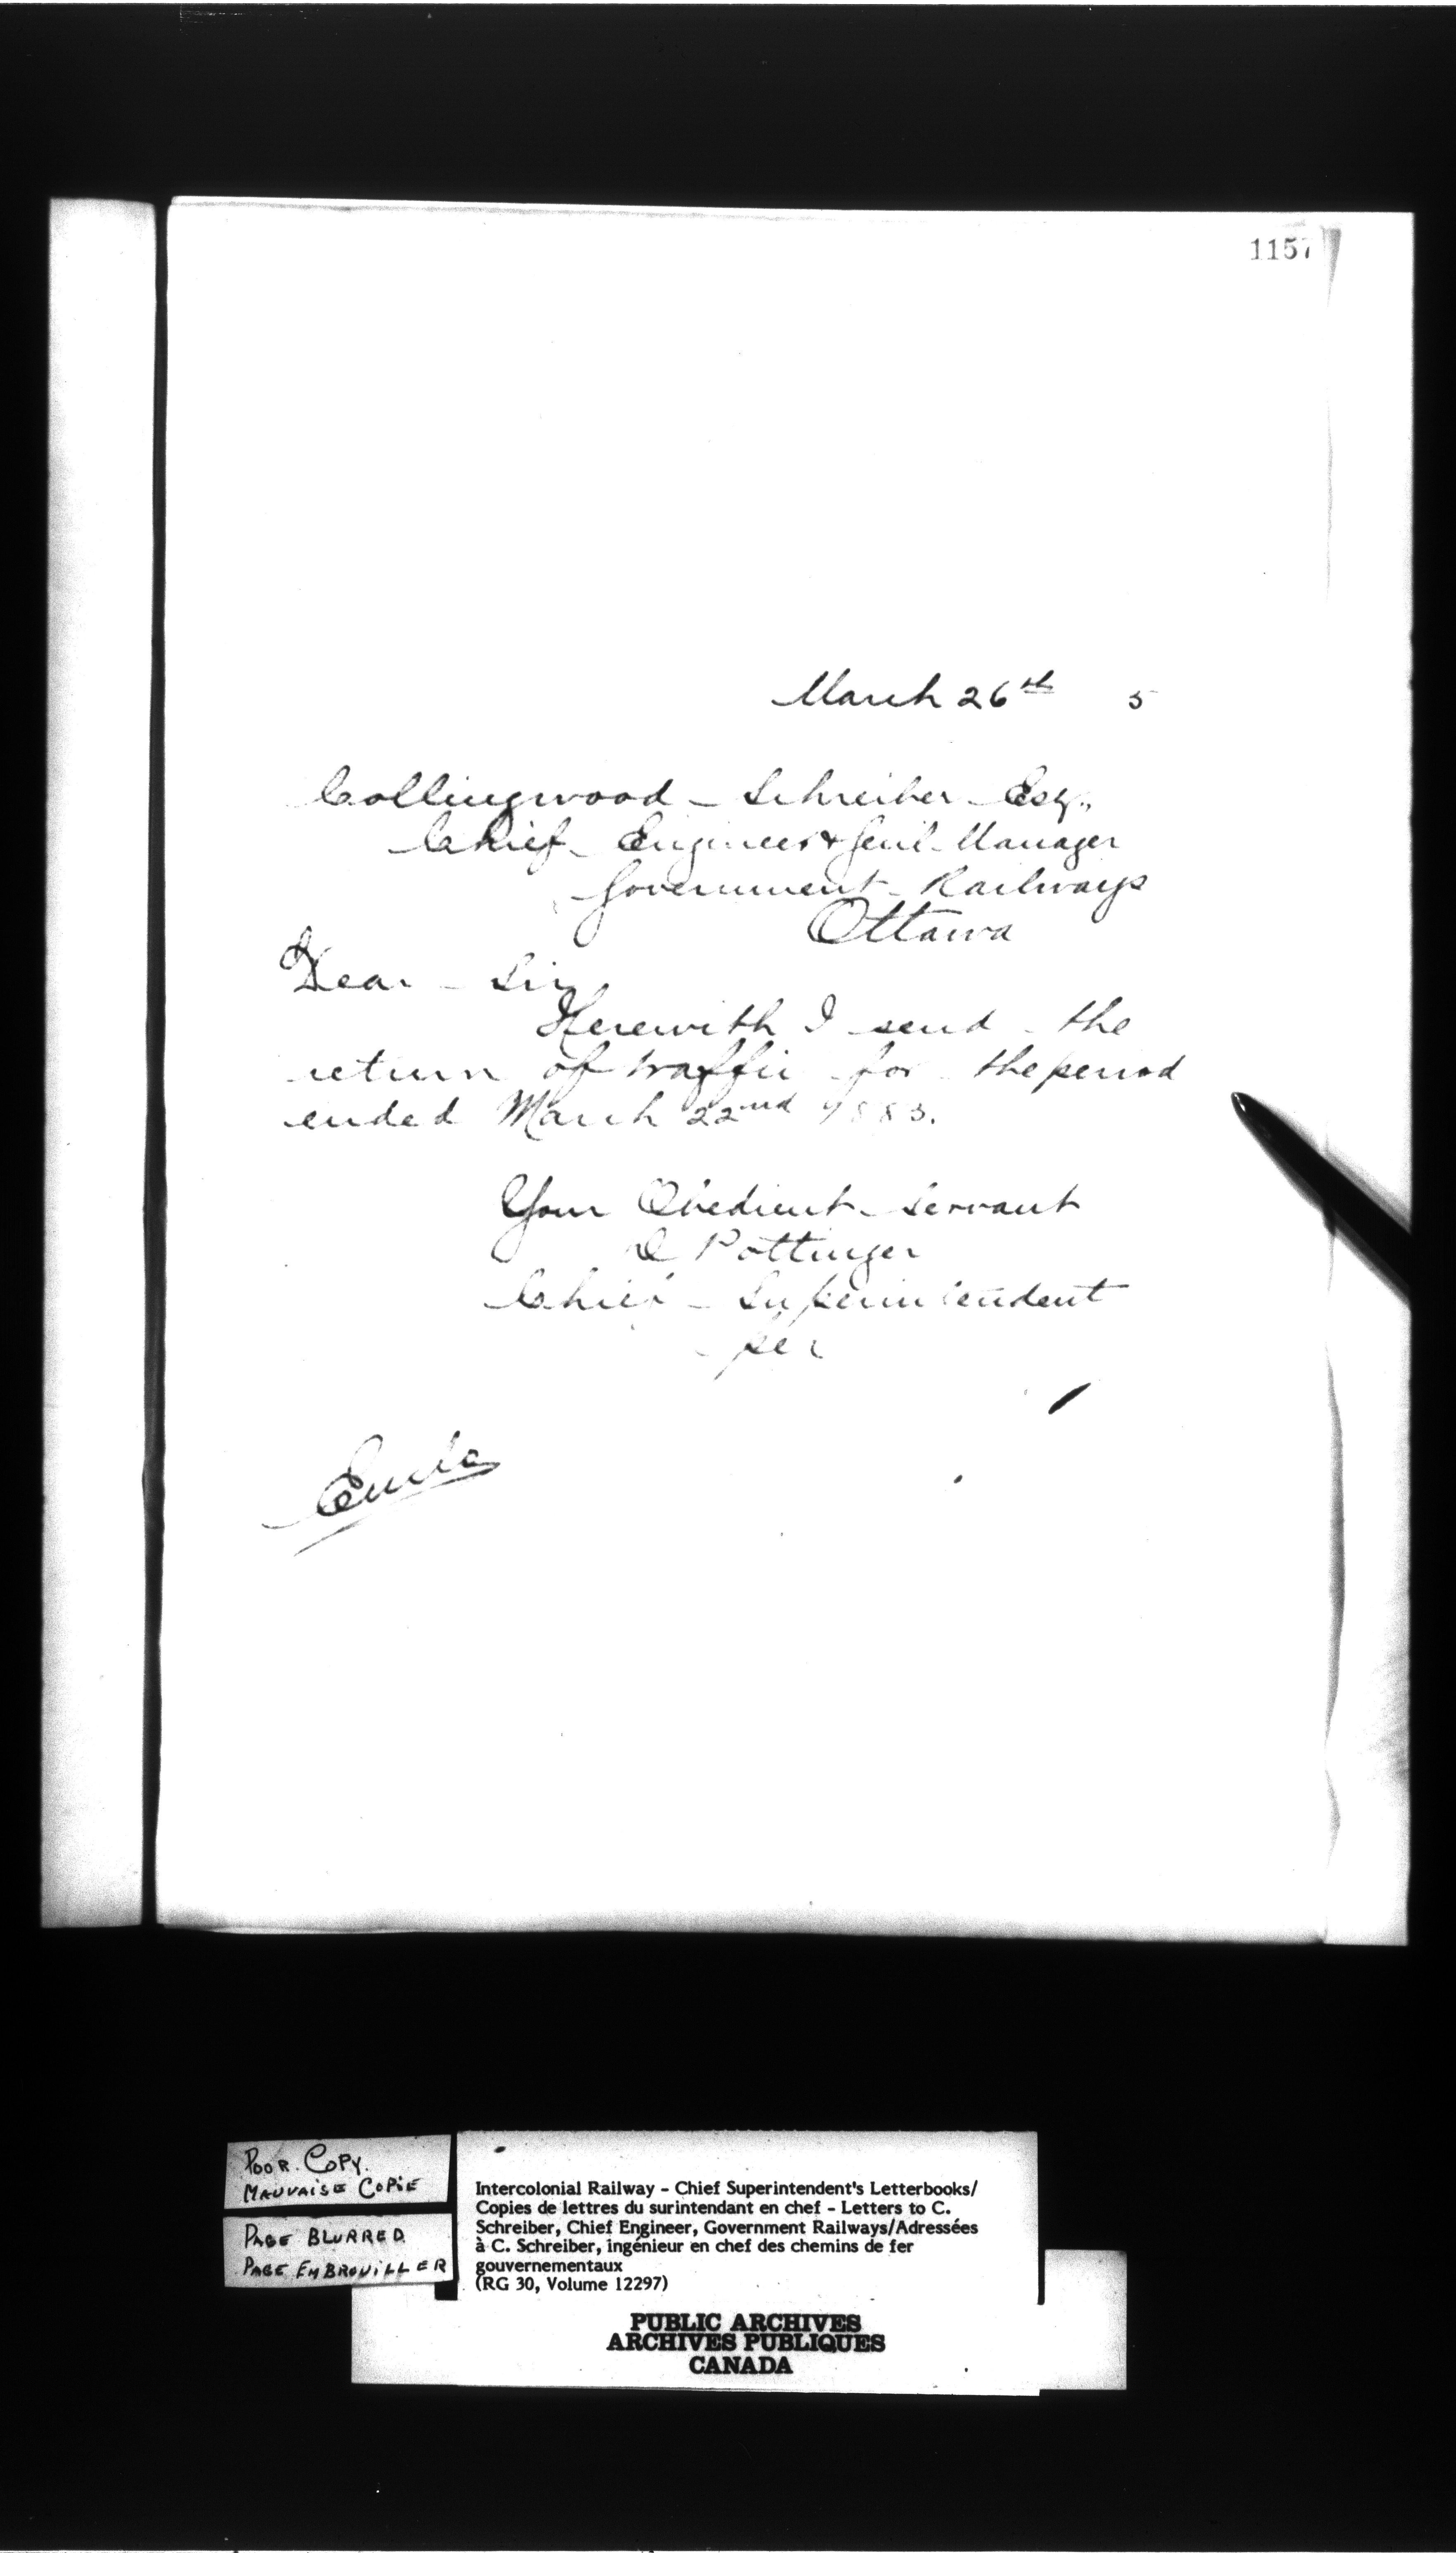 1157
March 26th 5
Collingwood Schreiber Esq.,
Chief Engineer & Genl. Manager
Government Railways
Ottawa
Dear Sir
Herewith I send the
return of traffic for the period
ended March 22nd
Your Obedient Servant
D Pottinger
Chief Superintendent
per
Encls
POOR COPY.
MAUVAISE COPIE
PAGE BLURRED
PAGE EMBROUILLER
Intercolonial Railway - Chief Superintendent's Letterbooks/
Copies de lettres du surintendant en chef - Letters to C.
Schreiber, Chief Engineer, Government Railways/Adressées
à C. Schreiber, ingénieur en chef des chemins de fer
gouvernementaux
(RG 30, Volume 12297)
PUBLIC ARCHIVES
ARCHIVES PUBLIQUES
CANADA